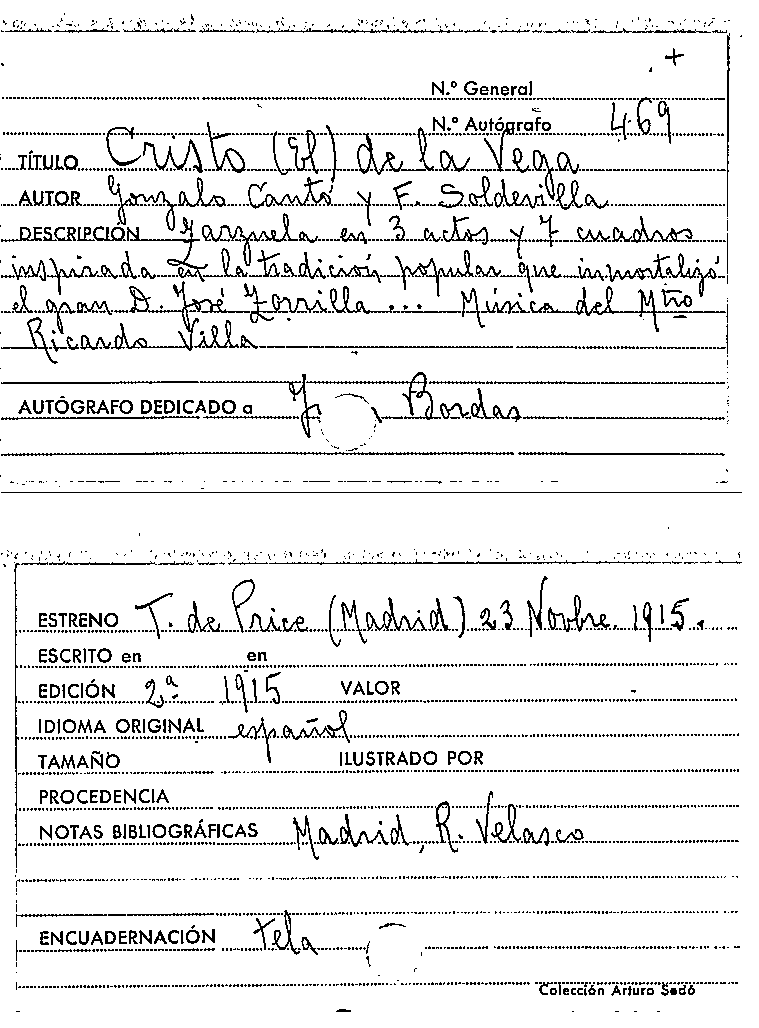 +
N.º General
N.º Autógrafo 469
TÍTULO Cristo (El) de la Vega
AUTOR Gonzalo Cantó y F. Soldevilla
DESCRIPCIÓN Zarzuela en 3 actos y 7 cuadros
inspirada en la tradición popular que inmortalizó
el gran D. José Zorrilla ... Música del Mtro
Ricardo Villa
AUTÓGRAFO DEDICADO a J. Bordas
ESTRENO T. de Price (Madrid) 23 Novbre. 1915.
ESCRITO en en
EDICIÓN 2.ª 1915 VALOR
IDIOMA ORIGINAL español
TAMAÑO ILUSTRADO POR
PROCEDENCIA
NOTAS BIBLIOGRÁFICAS Madrid, R. Velasco
ENCUADERNACIÓN tela
Colección Arturo Sedó